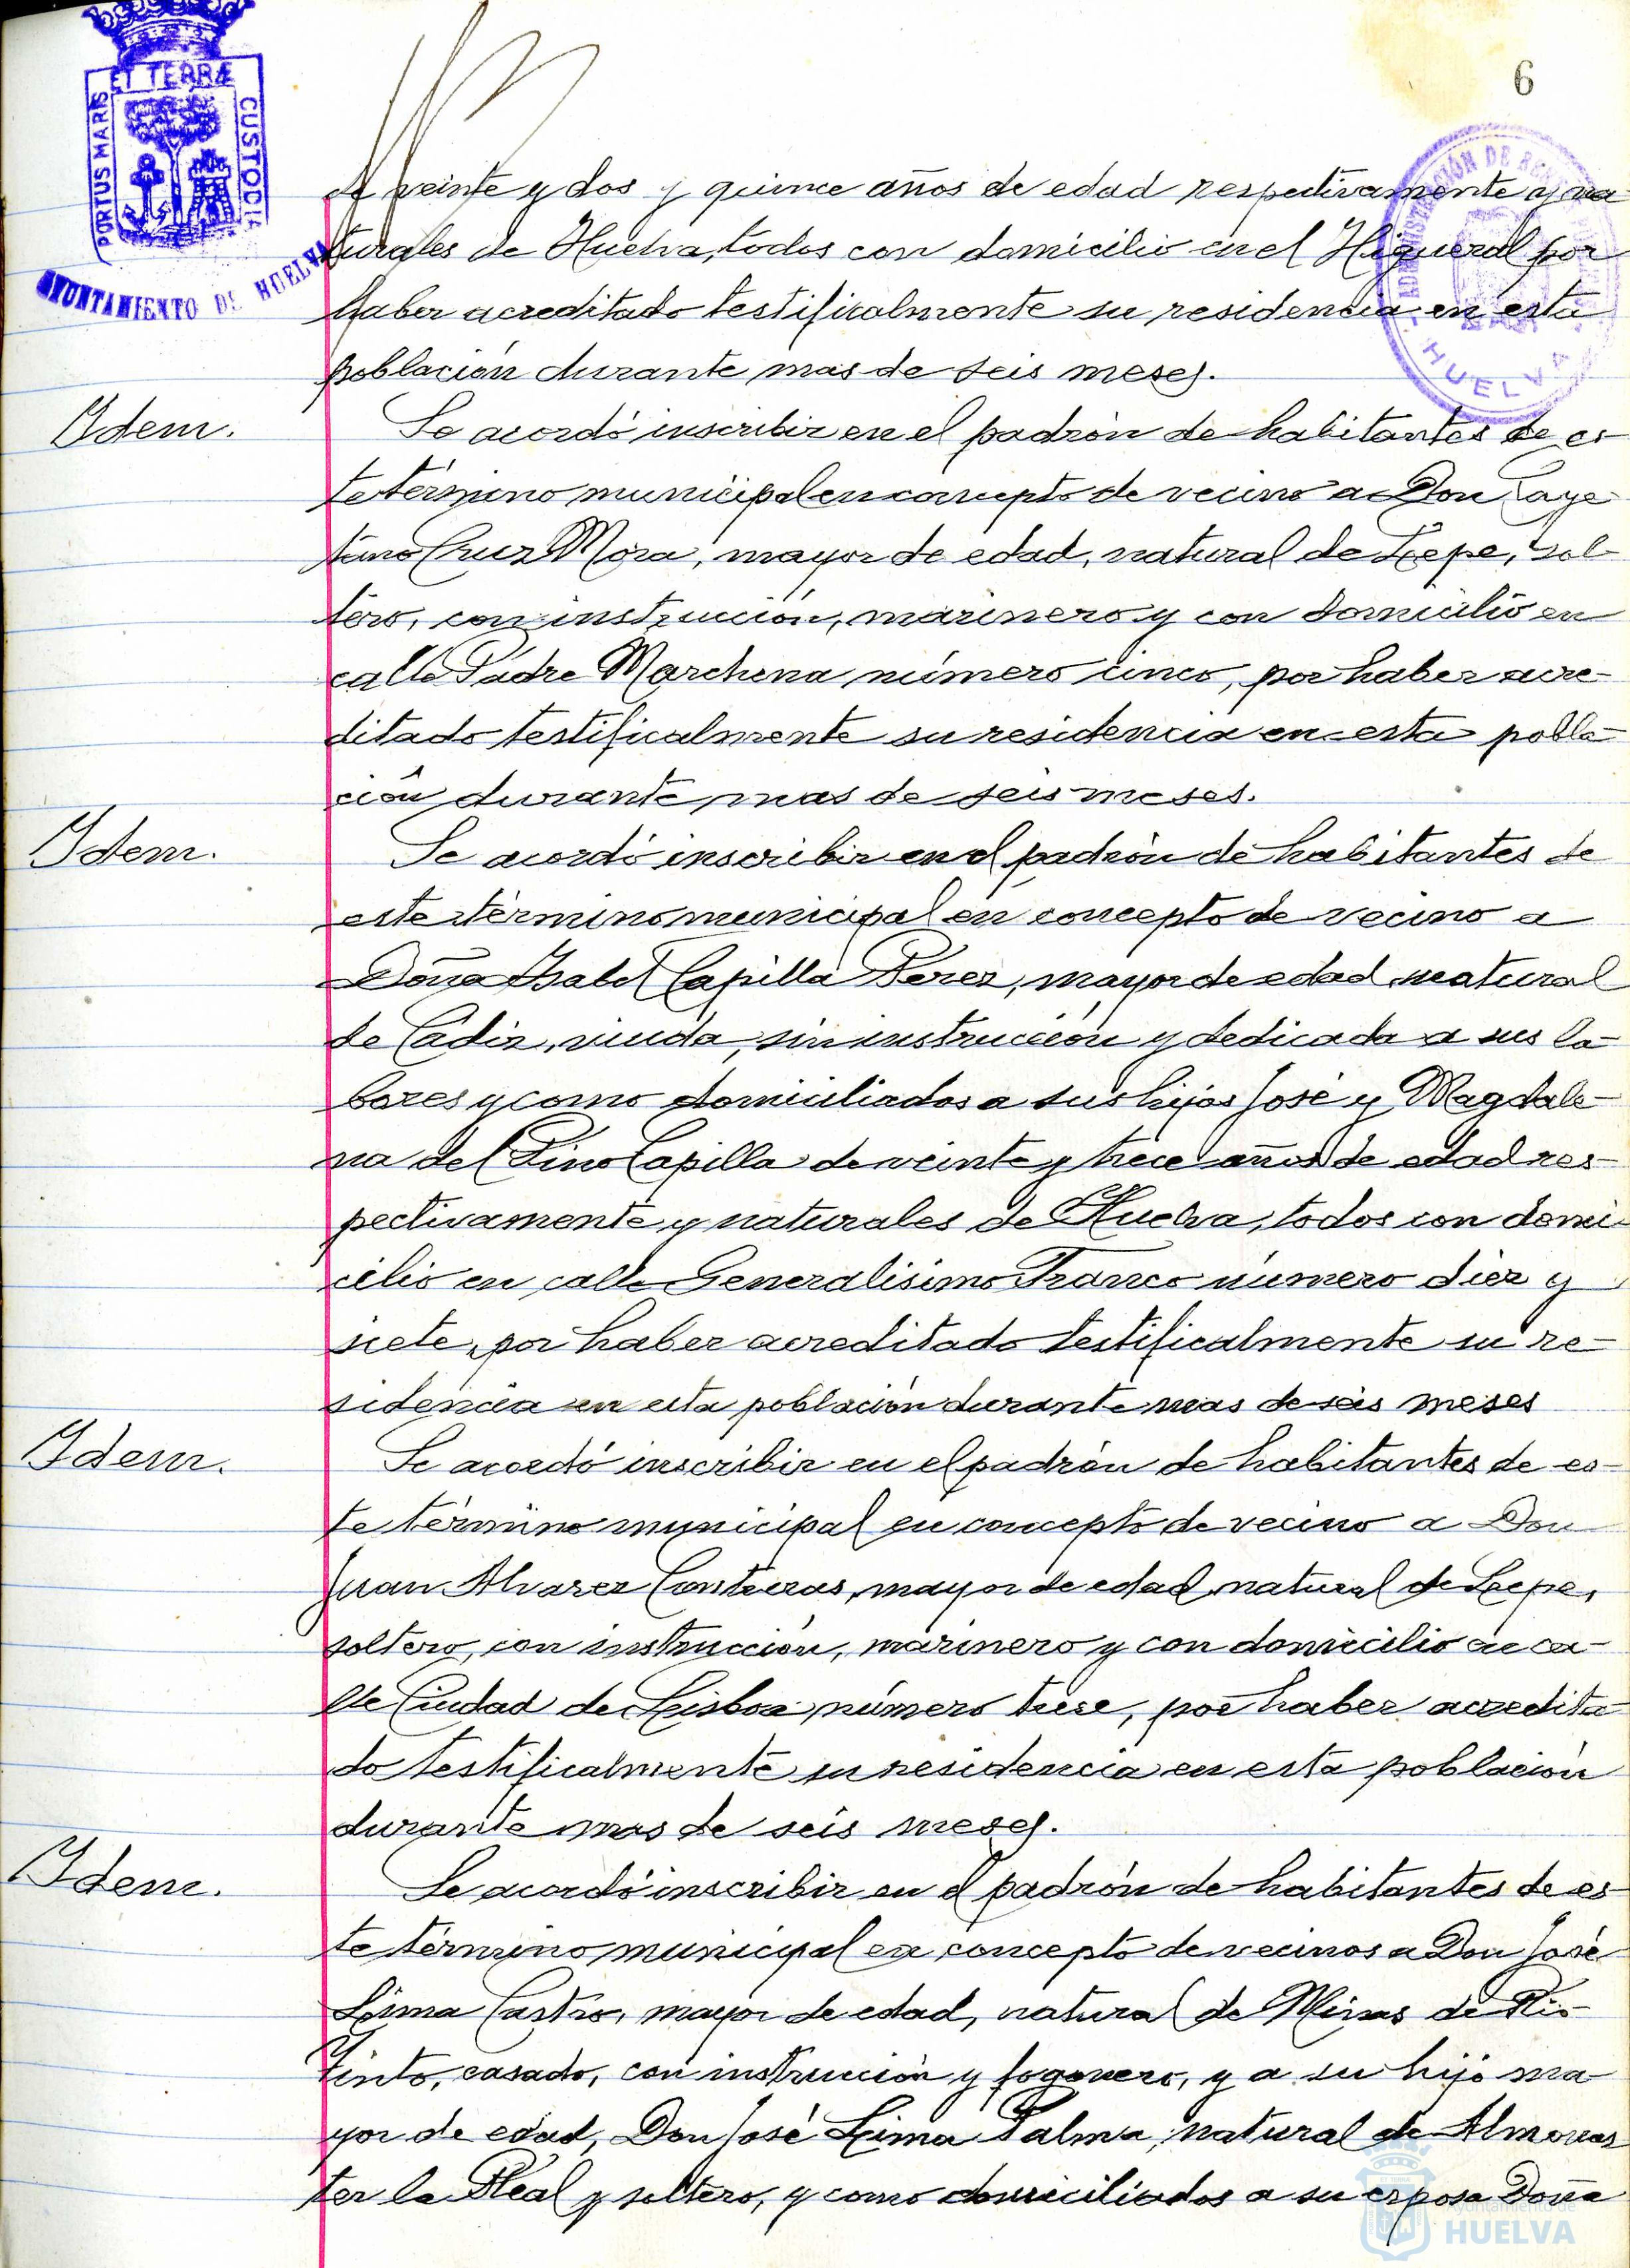 6
PORTUS MARIS ET TERRÆ CUSTODIA
AYUNTAMIENTO DE HUELVA
HUELVA
de veinte y dos y quince años de edad respectivamente y na
turales de Huelva, todos con domicilio en el Higueral por
haber acreditado testificalmente su residencia en esta
población durante mas de seis meses.
Idem.
Se acordó inscribir en el padrón de habitantes de es
te término municipal en concepto de vecino a Don Caye
tano Cruz Mora, mayor de edad, natural de Lepe, sol
tero, con instrucción, marinero y con domicilio en
calle Padre Marchena número cinco, por haber acre-
ditado testificalmente su residencia en esta pobla-
ción durante mas de seis meses.
Idem.
Se acordó inscribir en el padrón de habitantes de
este término municipal en concepto de vecino a
Doña Isabel Capilla Perez, mayor de edad, natural
de Cádiz, viuda, sin instrucción y dedicada a sus la-
bores y como domiciliados a sus hijos José y Magdale-
na del Pino Capilla de veinte y trece años de edad res-
pectivamente y naturales de Huelva, todos con domi-
cilio en calle Generalisimo Franco número diez y
siete, por haber acreditado testificalmente su re-
sidencia en esta población durante mas de seis meses
Idem.
Se acordó inscribir en el padrón de habitantes de es-
te término municipal en concepto de vecino a Don
Juan Alvarez Contreras, mayor de edad, natural de Lepe,
soltero, con instrucción, marinero y con domicilio en ca-
lle Ciudad de Lisboa número trese, por haber acredita
do testificalmente su residencia en esta población
durante mas de seis meses.
Idem.
Se acordó inscribir en el padrón de habitantes de es-
te término municipal en concepto de vecinos a Don José
Lima Castro, mayor de edad, natural de Minas de Rio-
Tinto, casado, con instrucción y fogonero, y a su hijo ma
yor de edad, Don José Lima Palma, natural de Almonas
ter la Real y soltero, y como domiciliados a su esposa Doña
Ayuntamiento de
HUELVA